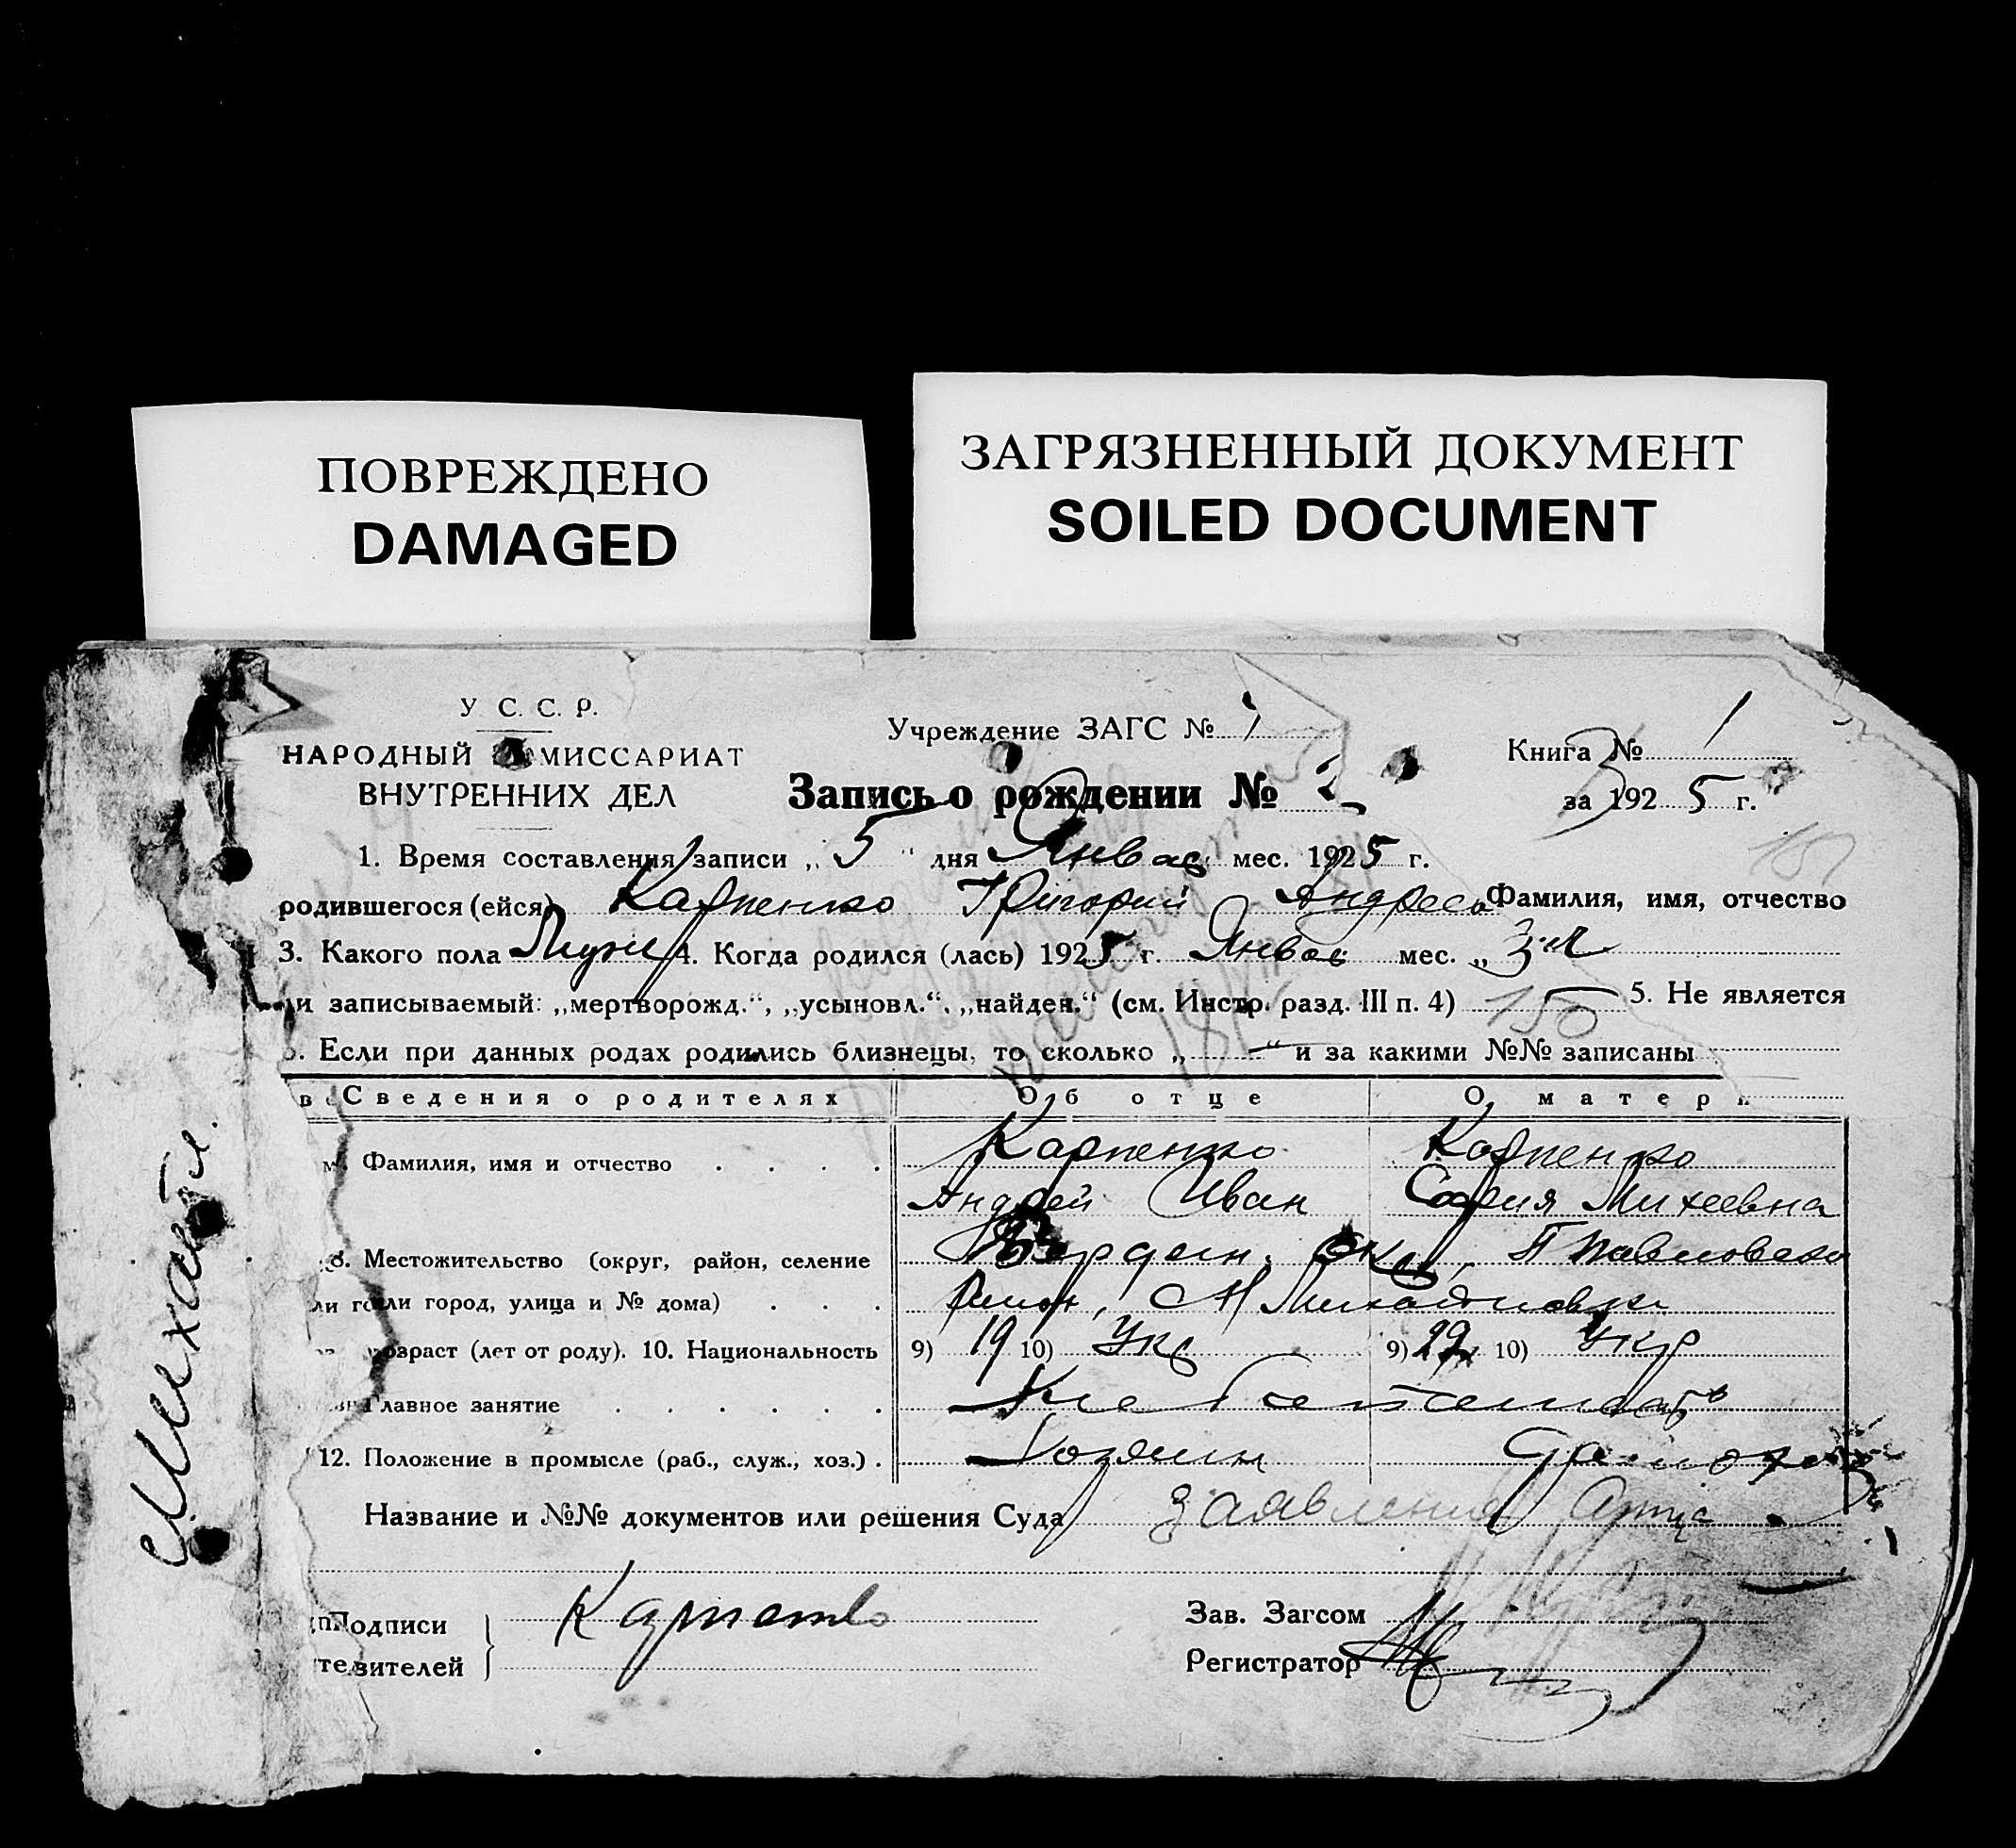 ПОВРЕЖДЕНО
DAMAGED
ЗАГРЯЗНЕННЫЙ ДОКУМЕНТ
SOILED DOCUMENT
У. С. С. Р.
НАРОДНЫЙ КОМИССАРИАТ
ВНУТРЕННИХ ДЕЛ
Учреждение ЗАГС № 1
Запись о рождении № 2
Книга № 1
за 1925 г.
1. Время составления записи „5“ дня Январ мес. 1925 г.
родившегося (ейся) Карпенко Григорий Андрее Фамилия, имя, отчество
3. Какого пола Муж 4. Когда родился (лась) 1925 г. Январ мес. „3
и записываемый: „мертворожд.“, „усыновл.“, „найден.“ (см. Инстр. разд. III п. 4) 150 5. Не является
6. Если при данных родах родились близнецы, то сколько „—“ и за какими №№ записаны
Сведения о родителях Об отце О матери
Фамилия, имя и отчество Карпенко Карпенко
Андрей Иван София Михеевна
8. Местожительство (округ, район, селение Бердян. Окр, П Павловско
или город, улица и № дома) Район, Михайловка
возраст (лет от роду). 10. Национальность 9) 19 10) Укр 9) 22 10) Укр
Главное занятие
12. Положение в промысле (раб., служ., хоз.) Хозяин
Название и №№ документов или решения Суда Заявление
Подписи Карпенко
Зав. Загсом
вителей
Регистратор